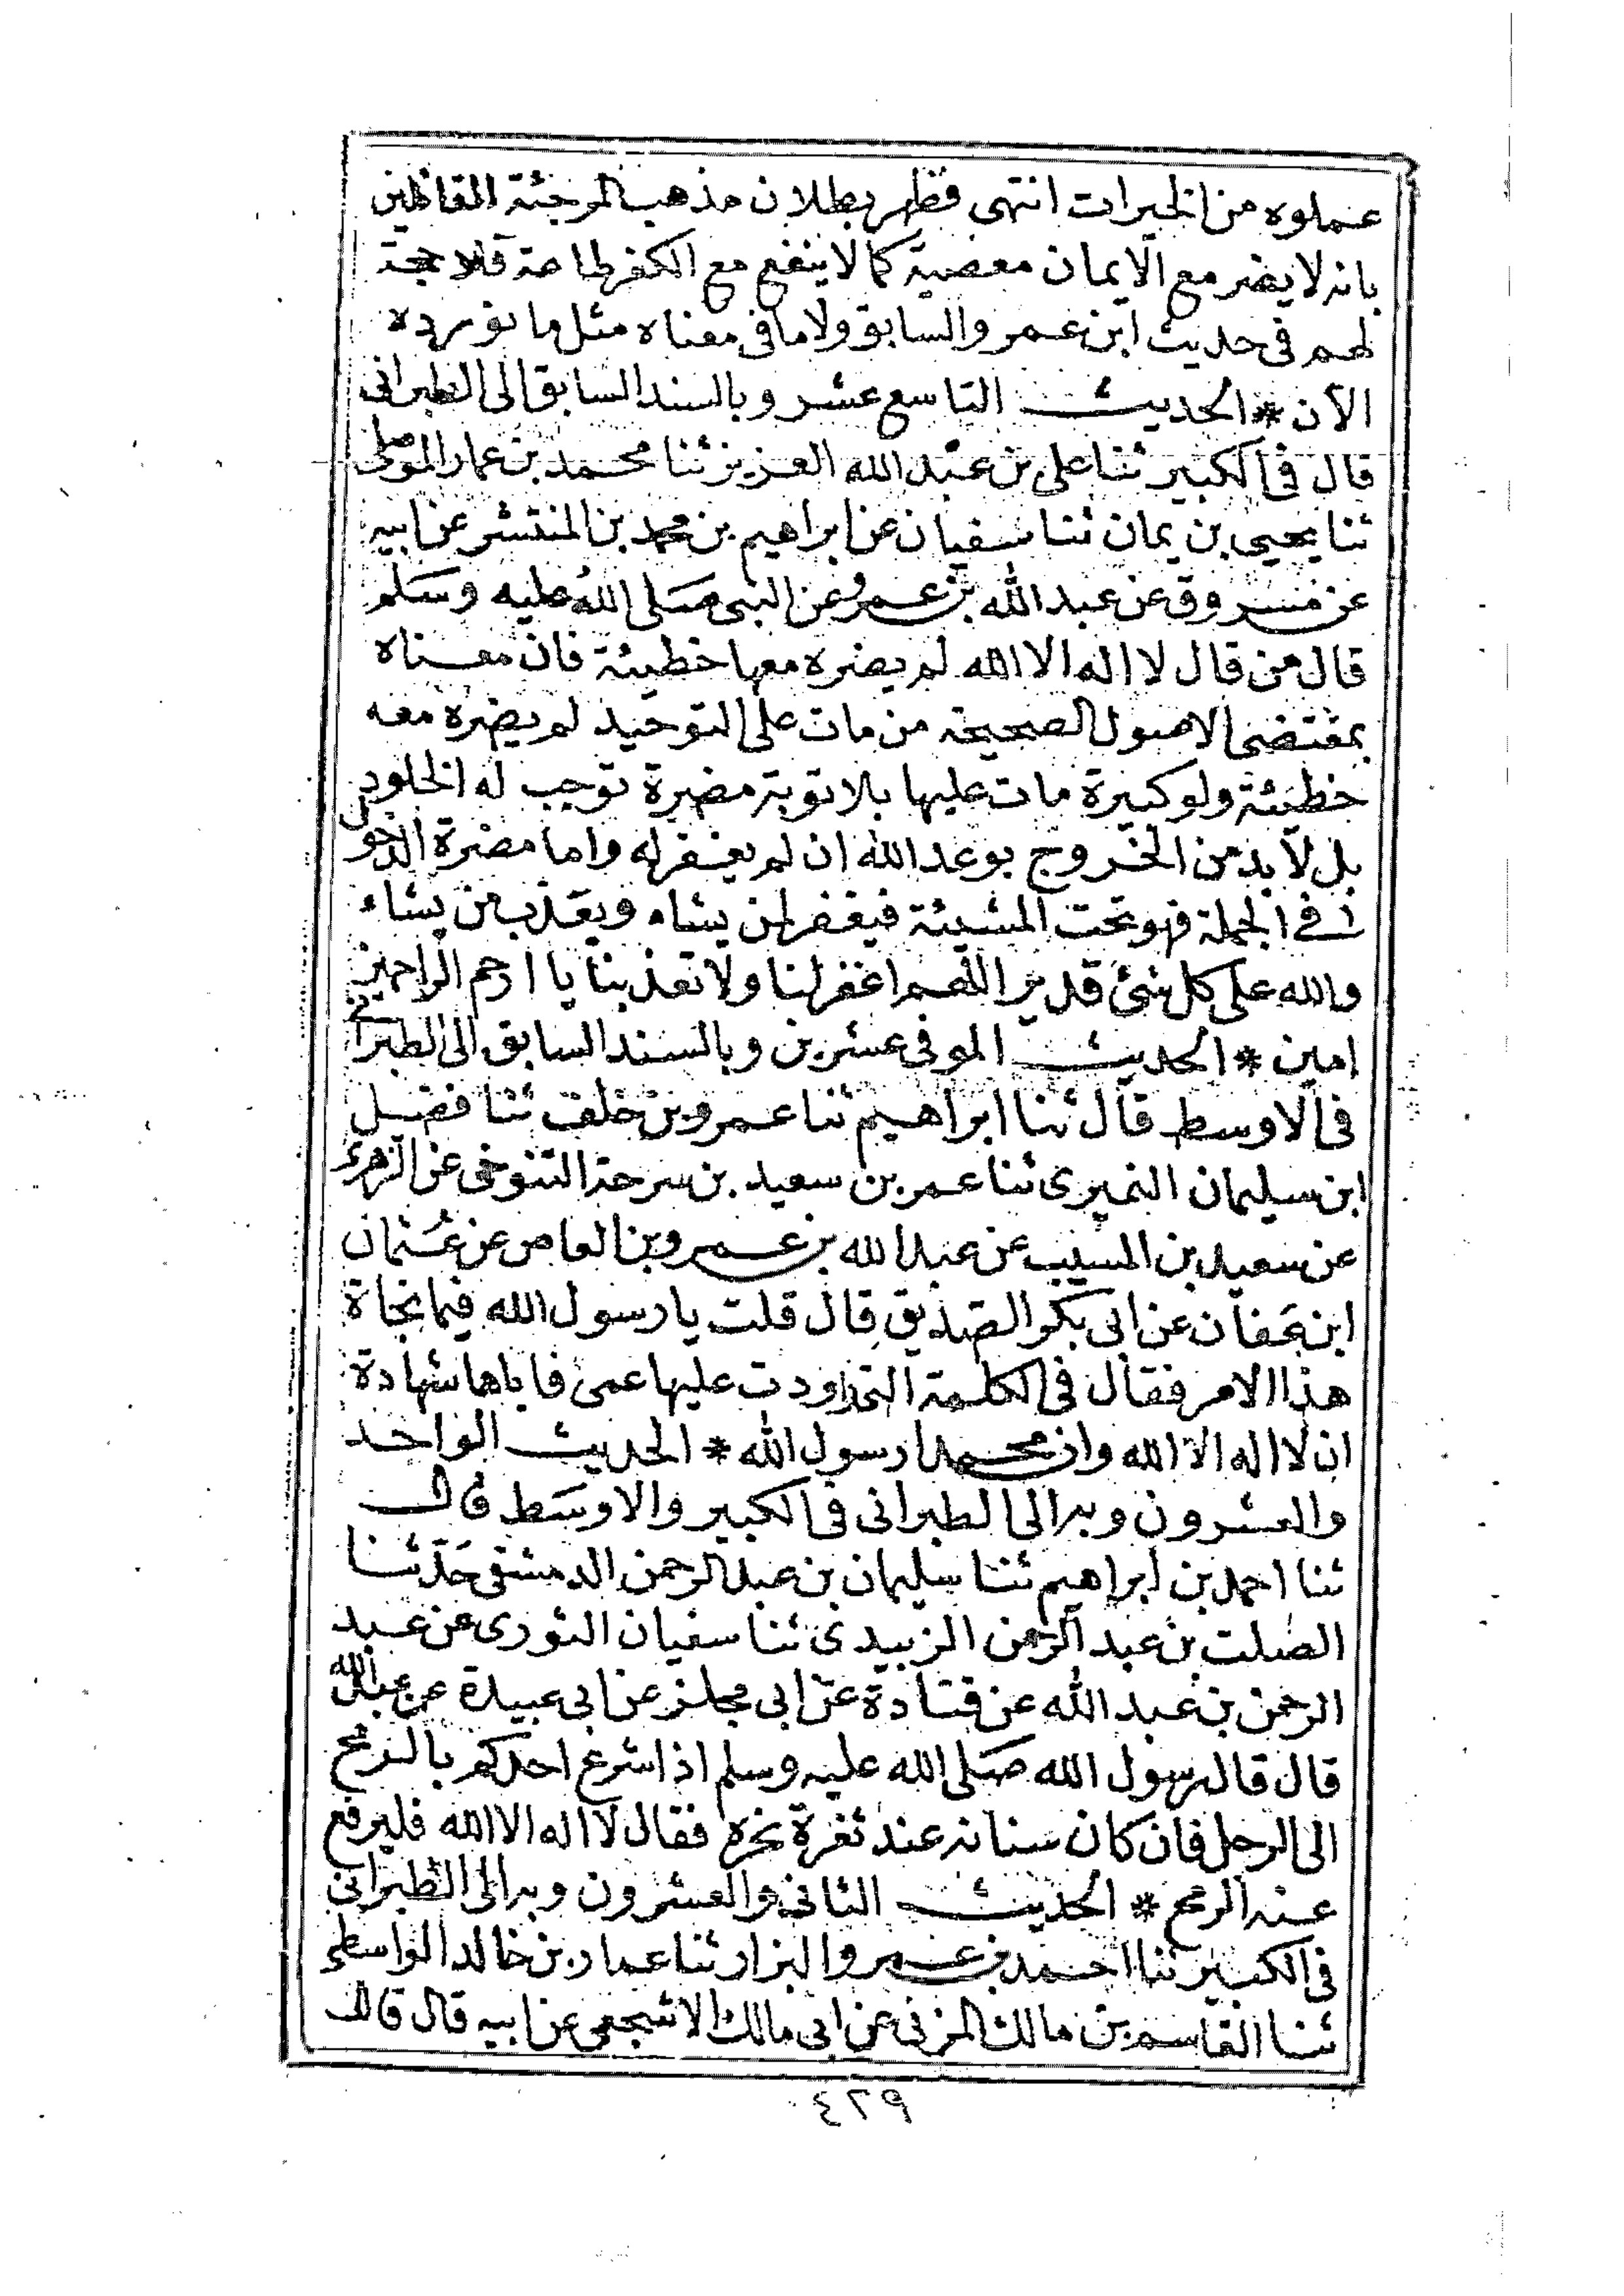 عملوه من الخيرات انتهى فظهر بطلان مذهب المرجئة القائلين
بانه لا يضر مع الايمان معصية كما لا ينفع مع الكفر طاعة فلا حجة
لهم فى حديث ابن عمر والسابق ولا ما فى معناه مثل ما نورده
الآن * الحديث التاسع عشر وبالسند السابق الى الطبرانى
قال فى الكبير ثنا على بن عبد الله العزيز ثنا محمد بن عمار الموصلى
ثنا يحيى بن يمان ثنا سفيان عن ابراهيم بن محمد بن المنتشر عن ابيه
عن مسروق عن عبد الله بن عمرو عن النبى صلى الله عليه وسلم
قال من قال لا اله الا الله لم يضره معها خطيئة فان معناه
بمقتضى الاصول الصحيحة من مات على التوحيد لم يضره معه
خطيئة ولو كبيرة مات عليها بلا توبة مضرة توجب له الخلود
بل لا بد من الخروج بوعد الله ان لم يغفر له واما مضرة الدخول
فى الجملة فهو تحت المشيئة فيغفر لمن يشاء ويعذب من يشاء
والله على كل شئ قدير اللهم اغفر لنا ولا تعذبنا يا ارحم الراحمين
امين * الحديث الموفى عشرين وبالسند السابق الى الطبرانى
فى الاوسط قال ثنا ابراهيم ثنا عمرو بن خلف ثنا فضل
ابن سليمان النميرى ثنا عمر بن سعيد بن سرحة التنوخى عن الزهرى
عن سعيد بن المسيب عن عبد الله بن عمرو بن العاص عن عُثمان
ابن عفان عن ابى بكر الصديق قال قلت يا رسول الله فيما نجاة
هذا الامر فقال فى الكلمة التى راودت عليها عمى فاباها شهادة
ان لا اله الا الله وان محمدا رسول الله * الحديث الواحد
والعشرون وبه الى الطبرانى فى الكبير والاوسط قال
ثنا احمد بن ابراهيم ثنا سليمان بن عبد الرحمن الدمشقى حدثنا
الصلت بن عبد الرحمن الزبيدى ثنا سفيان الثورى عن عبد
الرحمن بن عبد الله عن قتادة عن ابى مجلز عن ابى عبيدة عن عبد الله
قال قال رسول الله صلى الله عليه وسلم اذا اشرع احدكم بالرمح
الى الرجل فان كان سنانه عند ثغرة نحره فقال لا اله الا الله فليرفع
عنه الرمح * الحديث الثانى والعشرون وبه الى الطبرانى
فى الكبير ثنا احمد بن عمرو البزار ثنا عمار بن خالد الواسطى
ثنا القاسم بن مالك المزنى عن ابى مالك الاشجعى عن ابيه قال قال
٤٢٩